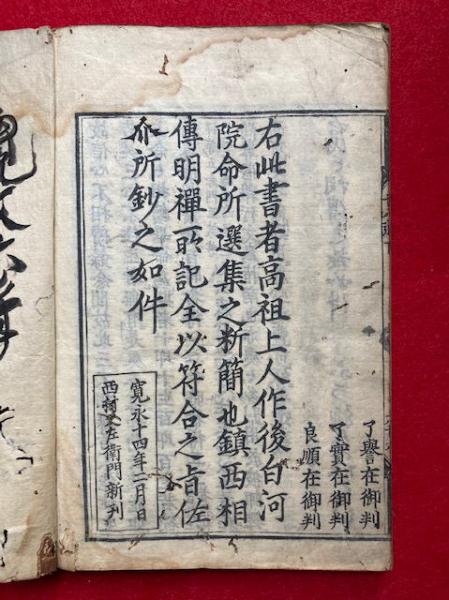 了譽在御判
了實在御判
良順在御判
右此書者高祖上人作後白河
院命所選集之断簡也鎮西相
傳明禪所記全以符合之旨佐
介所鈔之如件
寛永十四年二月日
西村又左衛門新刊